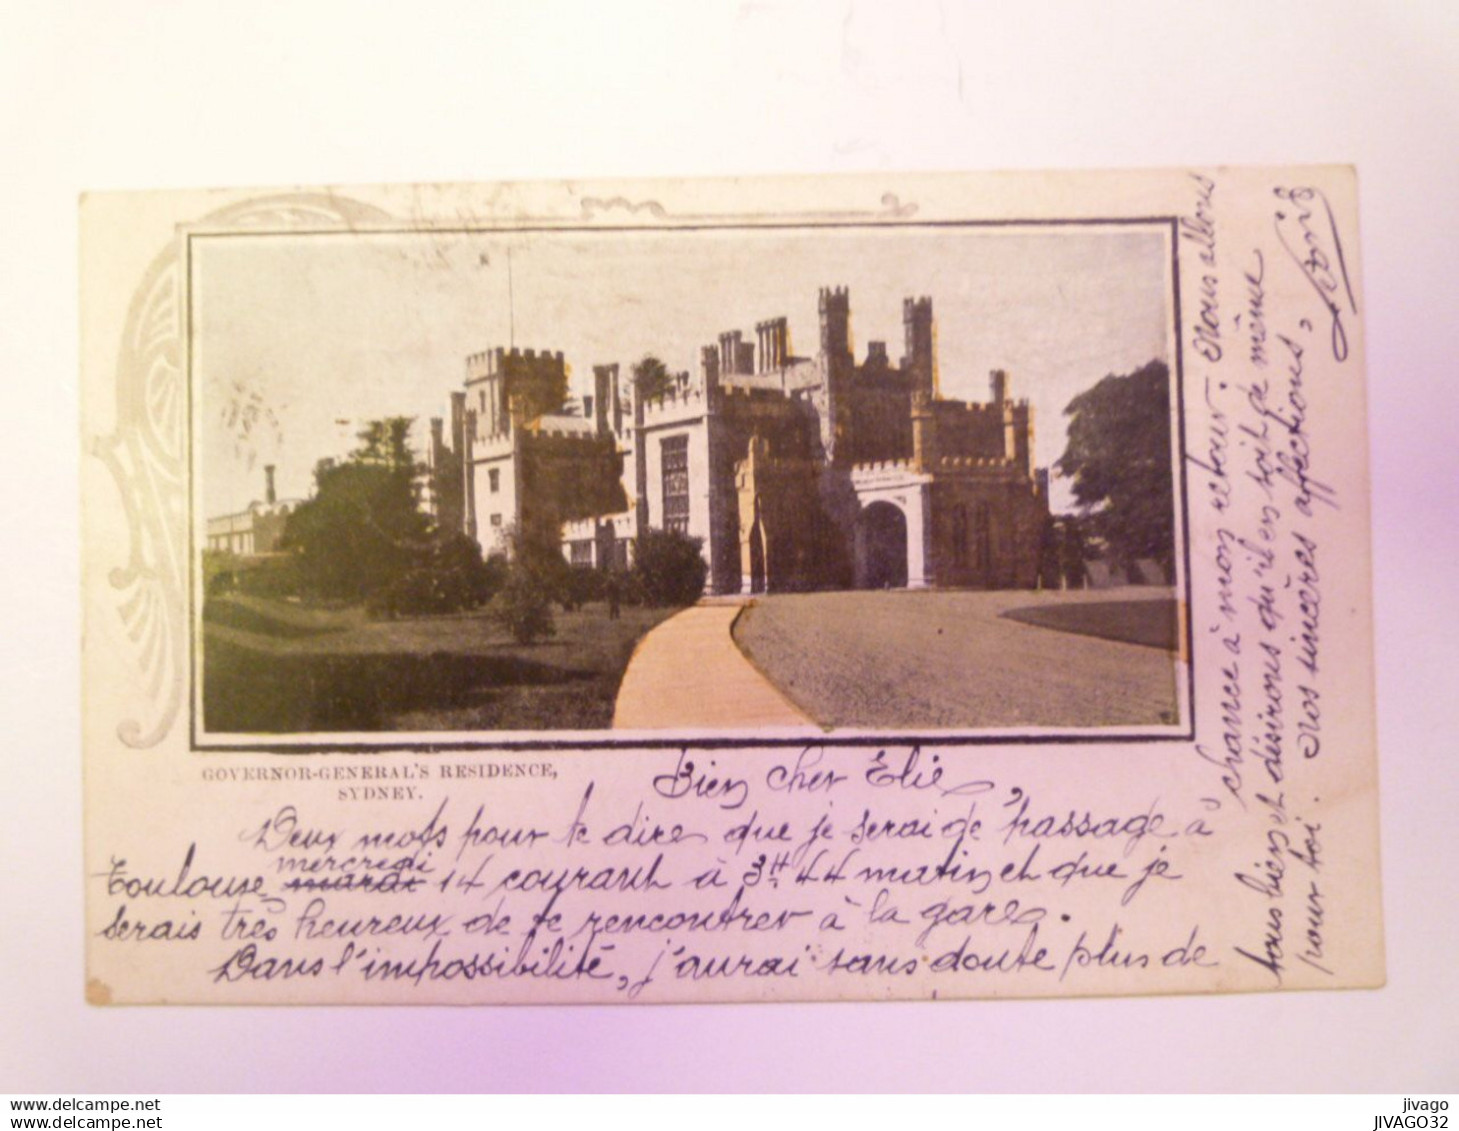 GOVERNOR-GENERAL'S RESIDENCE,
SYDNEY.
Bien cher Élie,
Deux mots pour te dire que je serai de passage à
Toulouse mercredi
mardi 14 courant à 3H 44 matin et que je
serais très heureux de te rencontrer à la gare.
Dans l'impossibilité, j'aurai sans doute plus de
chance à mon retour. Nous allons
tous bien et désirons qu'il en soit de même
pour toi. Nos sincères affections,
www.delcampe.net
jivago
www.delcampe.net
JIVAGO32